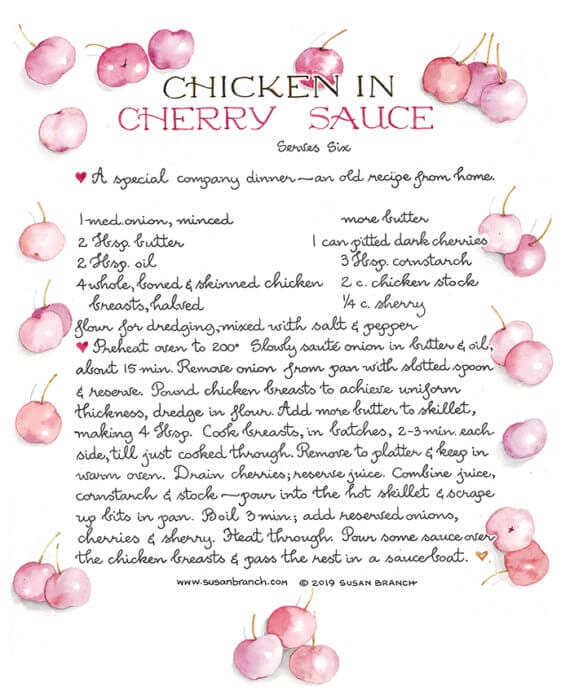 CHICKEN IN
CHERRY SAUCE
Serves Six
♥ A special company dinner—an old recipe from home.
1 med. onion, minced
2 Tbsp. butter
2 Tbsp. oil
4 whole, boned & skinned chicken
breasts, halved
flour for dredging, mixed with salt & pepper
more butter
1 can pitted dark cherries
3 Tbsp. cornstarch
2 c. chicken stock
1/4 c. sherry
♥ Preheat oven to 200° Slowly sauté onion in butter & oil,
about 15 min. Remove onion from pan with slotted spoon
& reserve. Pound chicken breasts to achieve uniform
thickness, dredge in flour. Add more butter to skillet,
making 4 Tbsp. Cook breasts, in batches, 2-3 min. each
side, till just cooked through. Remove to platter & keep in
warm oven. Drain cherries; reserve juice. Combine juice,
cornstarch & stock — pour into the hot skillet & scrape
up bits in pan. Boil 3 min.; add reserved onions,
cherries & sherry. Heat through. Pour some sauce over
the chicken breasts & pass the rest in a sauce boat. ♥
www.susanbranch.com © 2019 SUSAN BRANCH